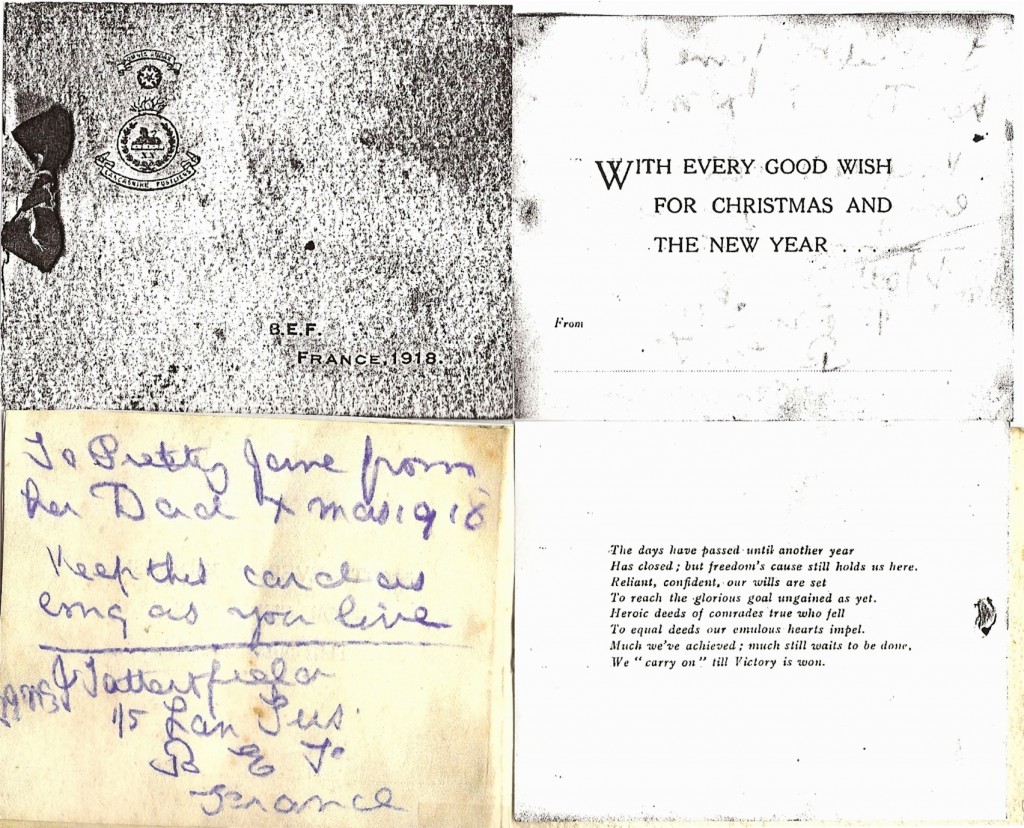 XX
LANCASHIRE FUSILIERS
B.E.F.
FRANCE, 1918.
WITH EVERY GOOD WISH
FOR CHRISTMAS AND
THE NEW YEAR . . . .
From
To Pretty Jane from
her Dad Xmas 1918
Keep this card as
long as you live
J Tattersfield
1/5 Lan Fus.
B E F
France
The days have passed until another year
Has closed; but freedom's cause still holds us here.
Reliant, confident, our wills are set
To reach the glorious goal ungained as yet.
Heroic deeds of comrades true who fell
To equal deeds our emulous hearts impel.
Much we've achieved; much still waits to be done,
We "carry on" till Victory is won.